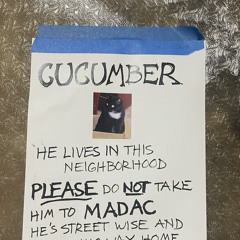 CUCUMBER
HE LIVES IN THIS
NEIGHBORHOOD
PLEASE DO NOT TAKE
HIM TO MADAC
HE'S STREET WISE AND
WAY HOME